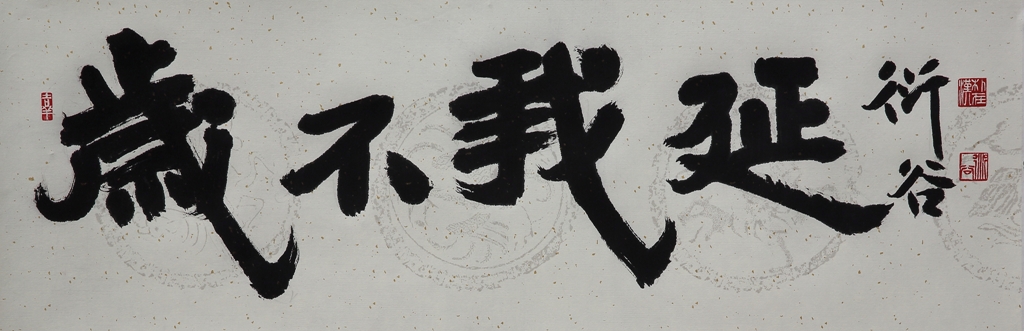 歲不我延
衍谷